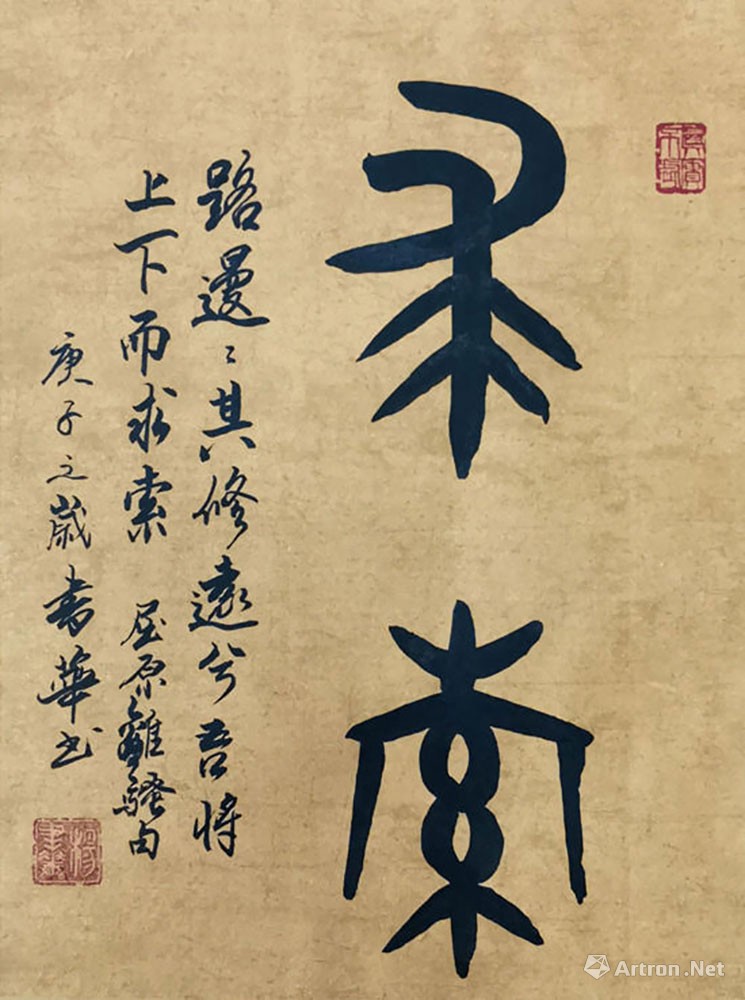 求索
路漫〻其修遠兮吾将
上下而求索 屈原離騷句
庚子之歲書華书
Artron.Net